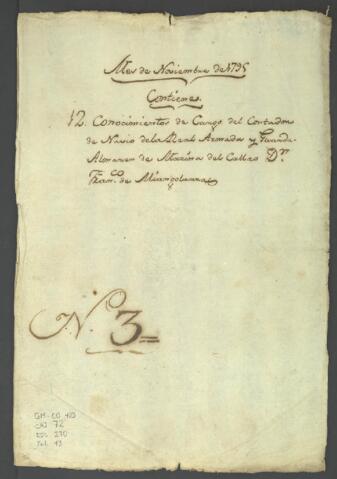 Mes de Noviembre de 1795
Contiene.
12. Conocimientos de Cargo del Contador
de Navio de la Real Armada y Guarda
Almacen de Marina del Callao Dn.
Fran.co de Miangolarra
N.º 3=
GM-CO 103
CAJ 72
DOC 270
Fol. 13